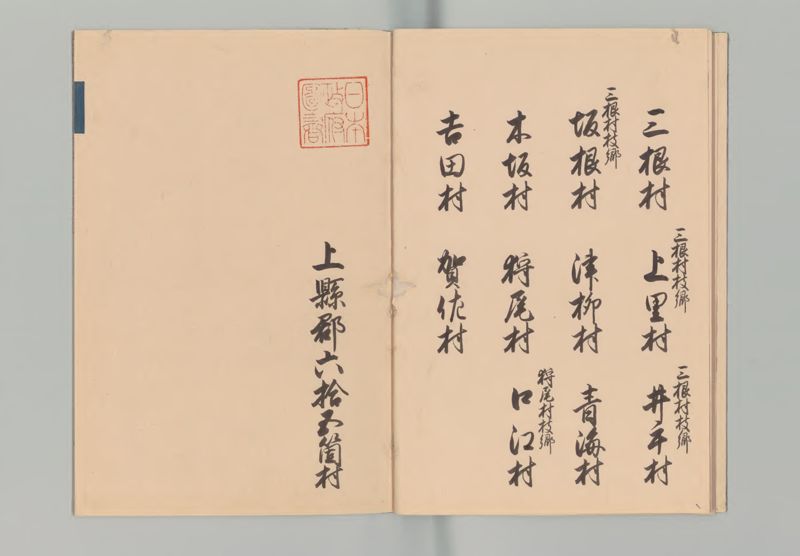 三根村
三根村枝郷
上里村
三根村枝郷
井手村
三根村枝郷
坂根村
津柳村
青海村
木坂村
狩尾村
狩尾村枝郷
口江村
吉田村
賀佐村
上縣郡六拾五箇村
日本
政府
圖書